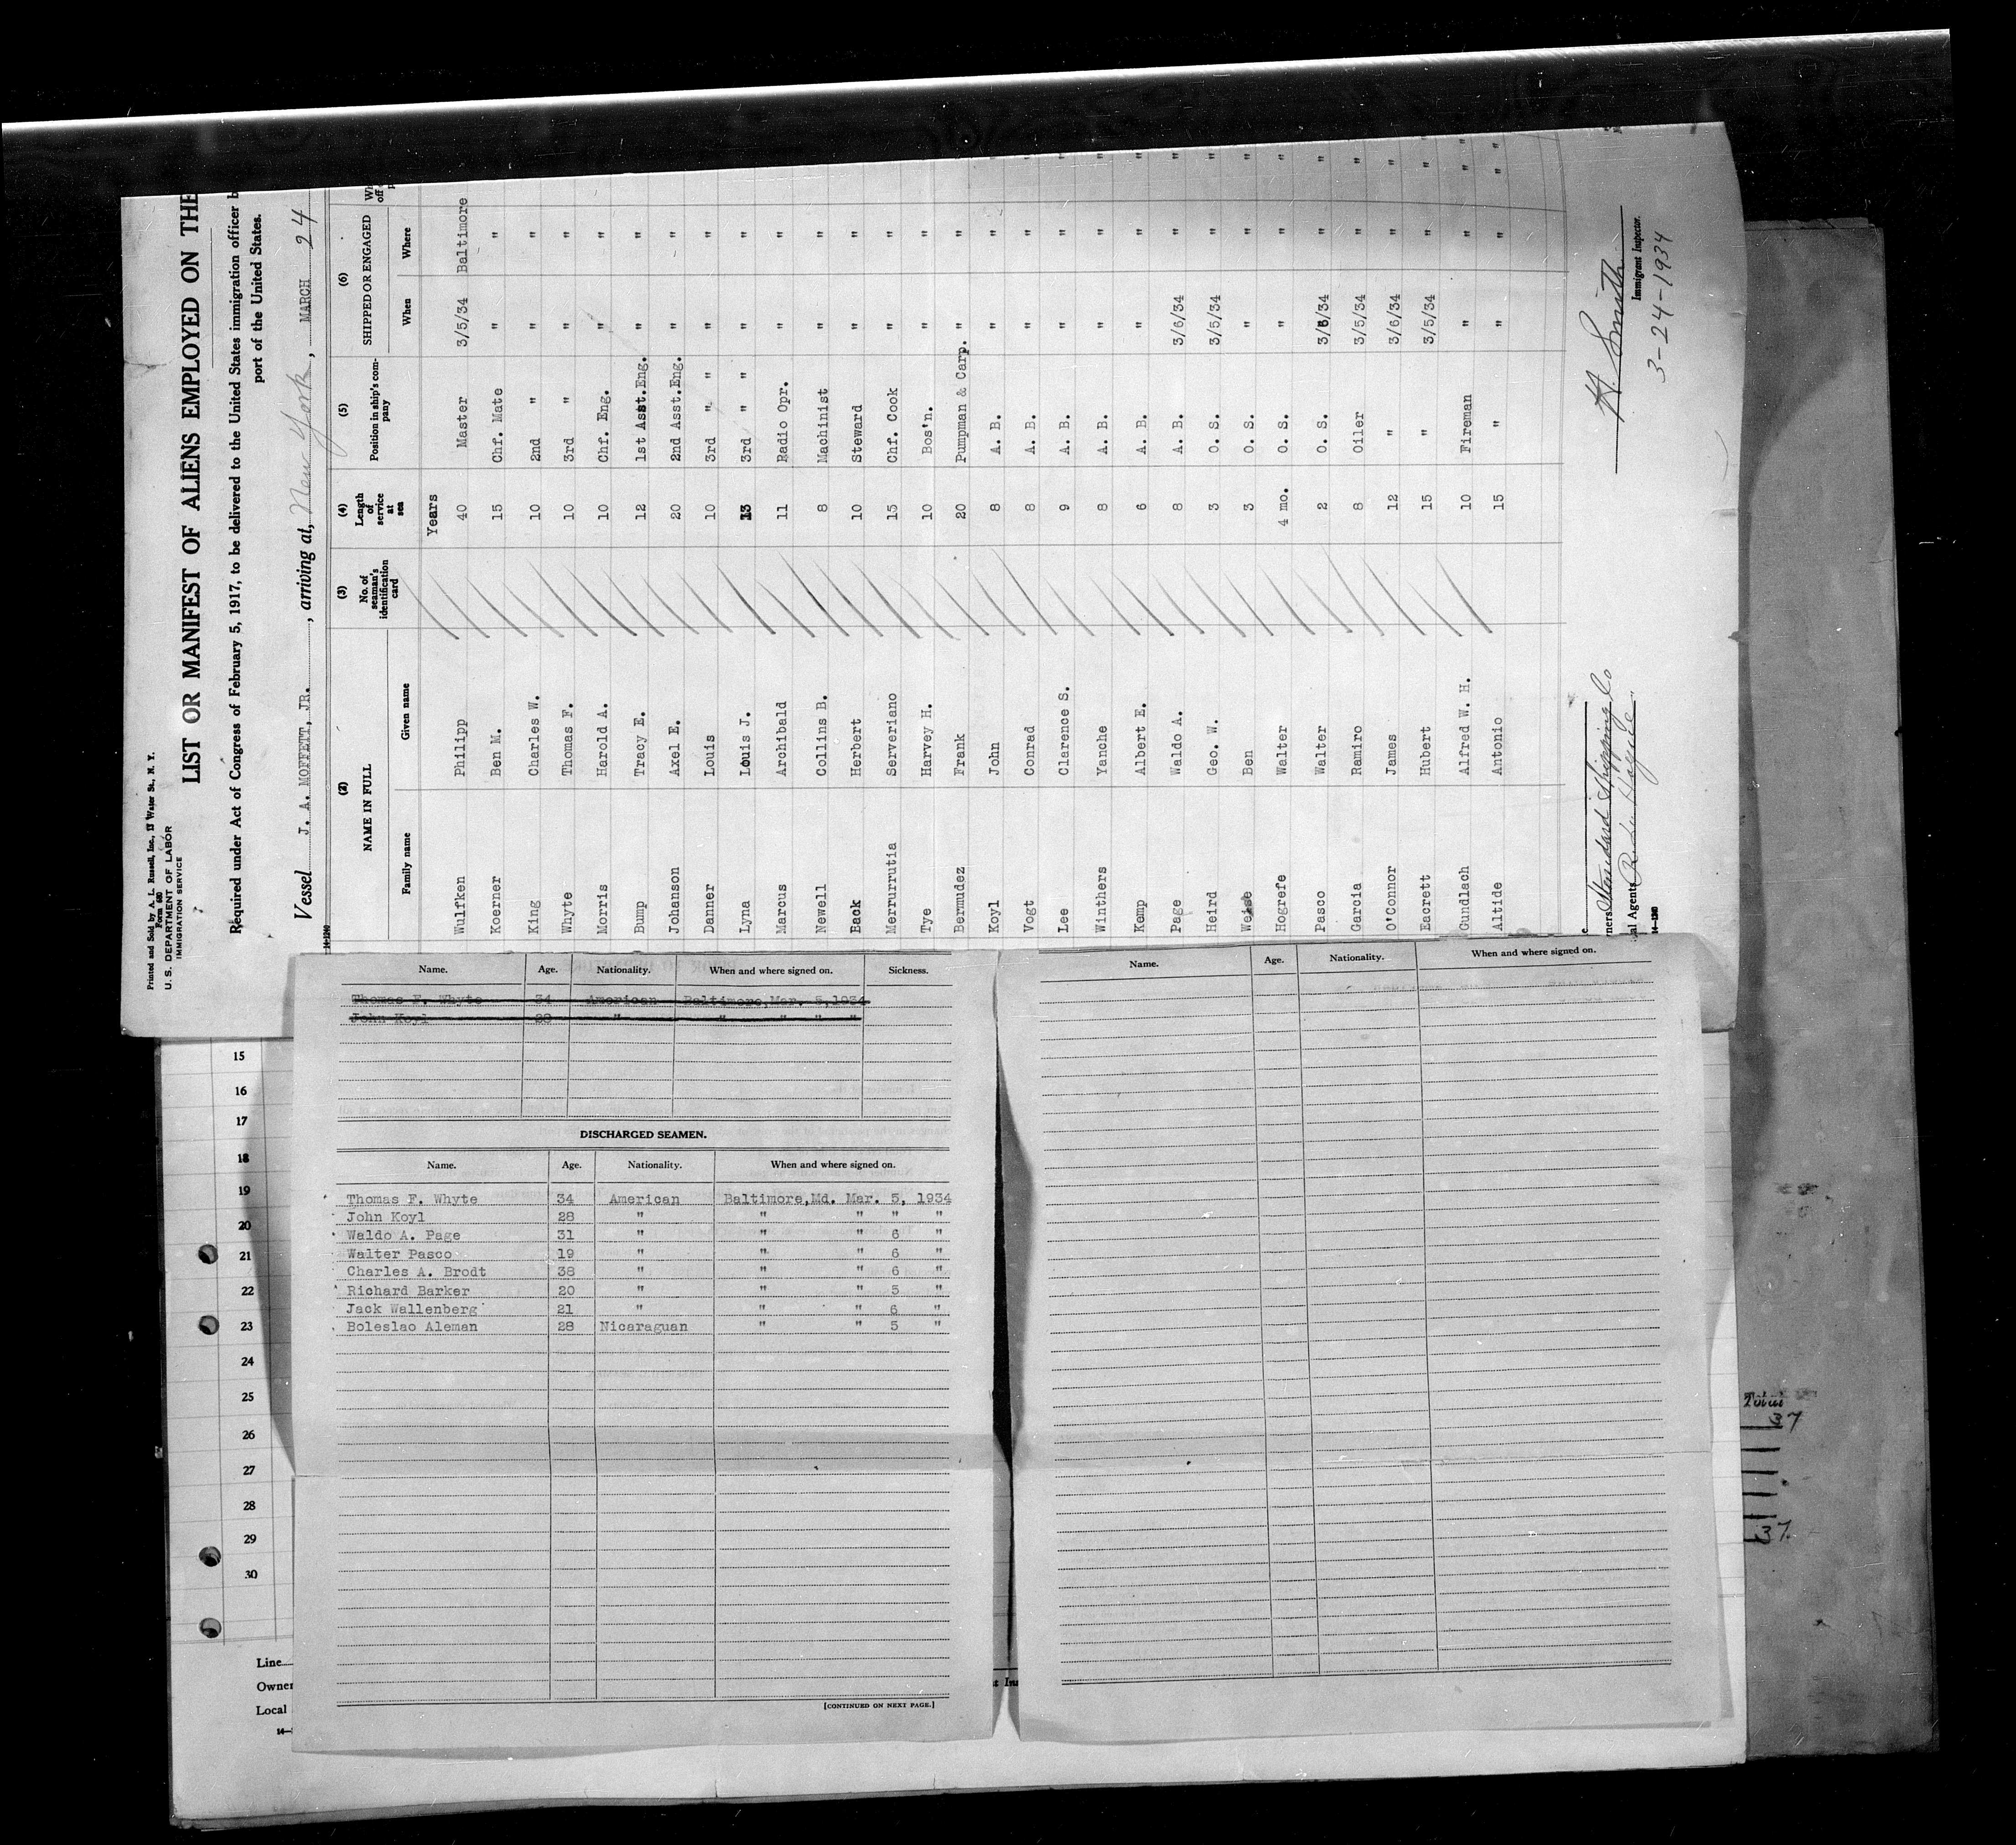 Printed and Sold by A. L. Russell, Inc., 17 Water St., N. Y.
Form 680
U. S. DEPARTMENT OF LABOR
IMMIGRATION SERVICE
LIST OR MANIFEST OF ALIENS EMPLOYED ON THE
Required under Act of Congress of February 5, 1917, to be delivered to the United States immigration officer b
port of the United States.
Vessel J. A. MOFFETT, JR. , arriving at, New York , MARCH 24
14-1240
(2) (3) (4) (5) (6)
NAME IN FULL No. of seaman's identification card Length of service at sea Position in ship's company SHIPPED OR ENGAGED
Family name Given name When Where
Years
Wulfken Philipp 40 Master 3/5/34 Baltimore
Koerner Ben M. 15 Chf. Mate " "
King Charles W. 10 2nd " " "
Whyte Thomas F. 10 3rd " " "
Morris Harold A. 10 Chf. Eng. " "
Bump Tracy E. 12 1st Asst.Eng. " "
Johanson Axel E. 20 2nd Asst.Eng. " "
Danner Louis 10 3rd " " " "
Lyna Louis J. 13 3rd " " " "
Marcus Archibald 11 Radio Opr. " "
Newell Collins B. 8 Machinist " "
Back Herbert 10 Steward " "
Merrurrutia Serveriano 15 Chf. Cook " "
Tye Harvey H. 10 Bos'n. " "
Bermudez Frank 20 Pumpman & Carp. " "
Koyl John 8 A. B. " "
Vogt Conrad 8 A. B. " "
Lee Clarence S. 9 A. B. " "
Winthers Yanche 8 A. B. " "
Kemp Albert E. 6 A. B. " "
Page Waldo A. 8 A. B. 3/6/34 "
Heird Geo. W. 3 O. S. 3/5/34 "
Weise Ben 3 O. S. " "
Hogrefe Walter 4 mo. O. S. " "
Pasco Walter 2 O. S. 3/6/34 "
Garcia Ramiro 8 Oiler 3/5/34 "
O'Connor James 12 " 3/6/34 "
Eacrett Hubert 15 " 3/5/34 "
Gundlach Alfred W. H. 10 Fireman " "
Altide Antonio 15 " " "
ners Standard Shipping Co
al Agents
14-1240
H. Smith
Immigrant Inspector.
3-24-1934
Name. Age. Nationality. When and where signed on. Sickness.
Thomas F. Whyte 34 American Baltimore,Mar. 5,1934
John Koyl 28 " " " " "
DISCHARGED SEAMEN.
Name. Age. Nationality. When and where signed on.
Thomas F. Whyte 34 American Baltimore,Md. Mar. 5, 1934
John Koyl 28 " " " " "
Waldo A. Page 31 " " " 6 "
Walter Pasco 19 " " " 6 "
Charles A. Brodt 38 " " " 6 "
Richard Barker 20 " " " 5 "
Jack Wallenberg 21 " " " 6 "
Boleslao Aleman 28 Nicaraguan " " 5 "
[CONTINUED ON NEXT PAGE.]
Name. Age. Nationality. When and where signed on.
15
16
17
18
19
20
21
22
23
24
25
26
27
28
29
30
Line
Owner
Local
14-
t In
Total
37
37